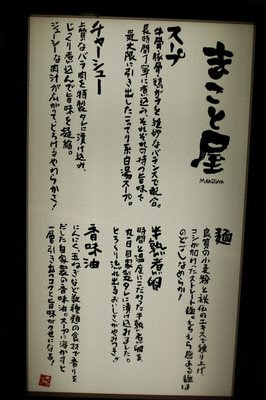 まこと屋
MAKOTOYA
スープ
牛骨豚骨鶏ガラを絶妙なバランスで配合。
長時間丁寧に煮込み、それぞれの持つ旨味を
最大限に引き出したこってり系白湯スープ。
チャーシュー
上質なバラ肉を特製タレに漬け込み、
じっくり煮込んで旨味を凝縮。
ジューシーな肉汁が広がって、とろけるやわらかさ！
麺
良質の小麦粉と秘伝のエキスで練り上げ
コシが加わったストレート麺。もちもち感ある麺は
のどごしなめらか！
半熟煮卵
時間と温度にこだわった半熟煮卵を
丸2日自家製タレに漬け込みました。
とろりと流れ出るおいしさがやみつき!!
香味油
にんにく、玉ねぎなど数種類の食材で香りを
だした自家製の香味油。スープに溶かすと
一層引き立つコクと旨味がクセになる！